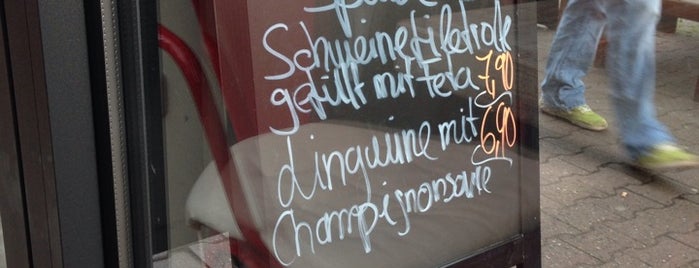 Schweinefiletrolle
gefüllt mit Feta 7,90
Linguine mit 6,90
Champignonsauce